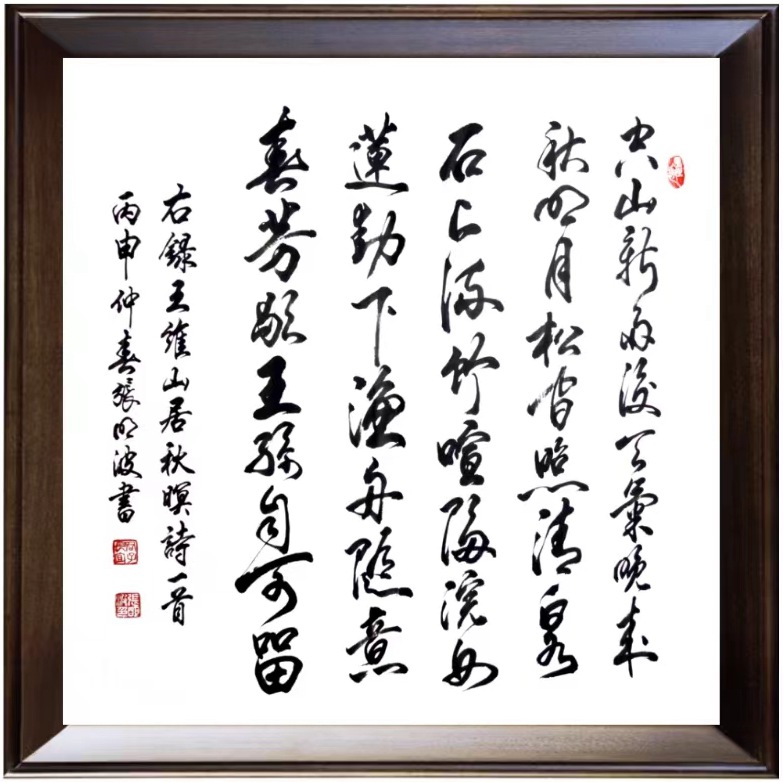 空山新雨後天氣晚來
秋明月松間照清泉
石上流竹喧歸浣女
蓮動下漁舟隨意
春芳歇王孫自可留
右錄王維山居秋暝詩一首
丙申仲春張明波書